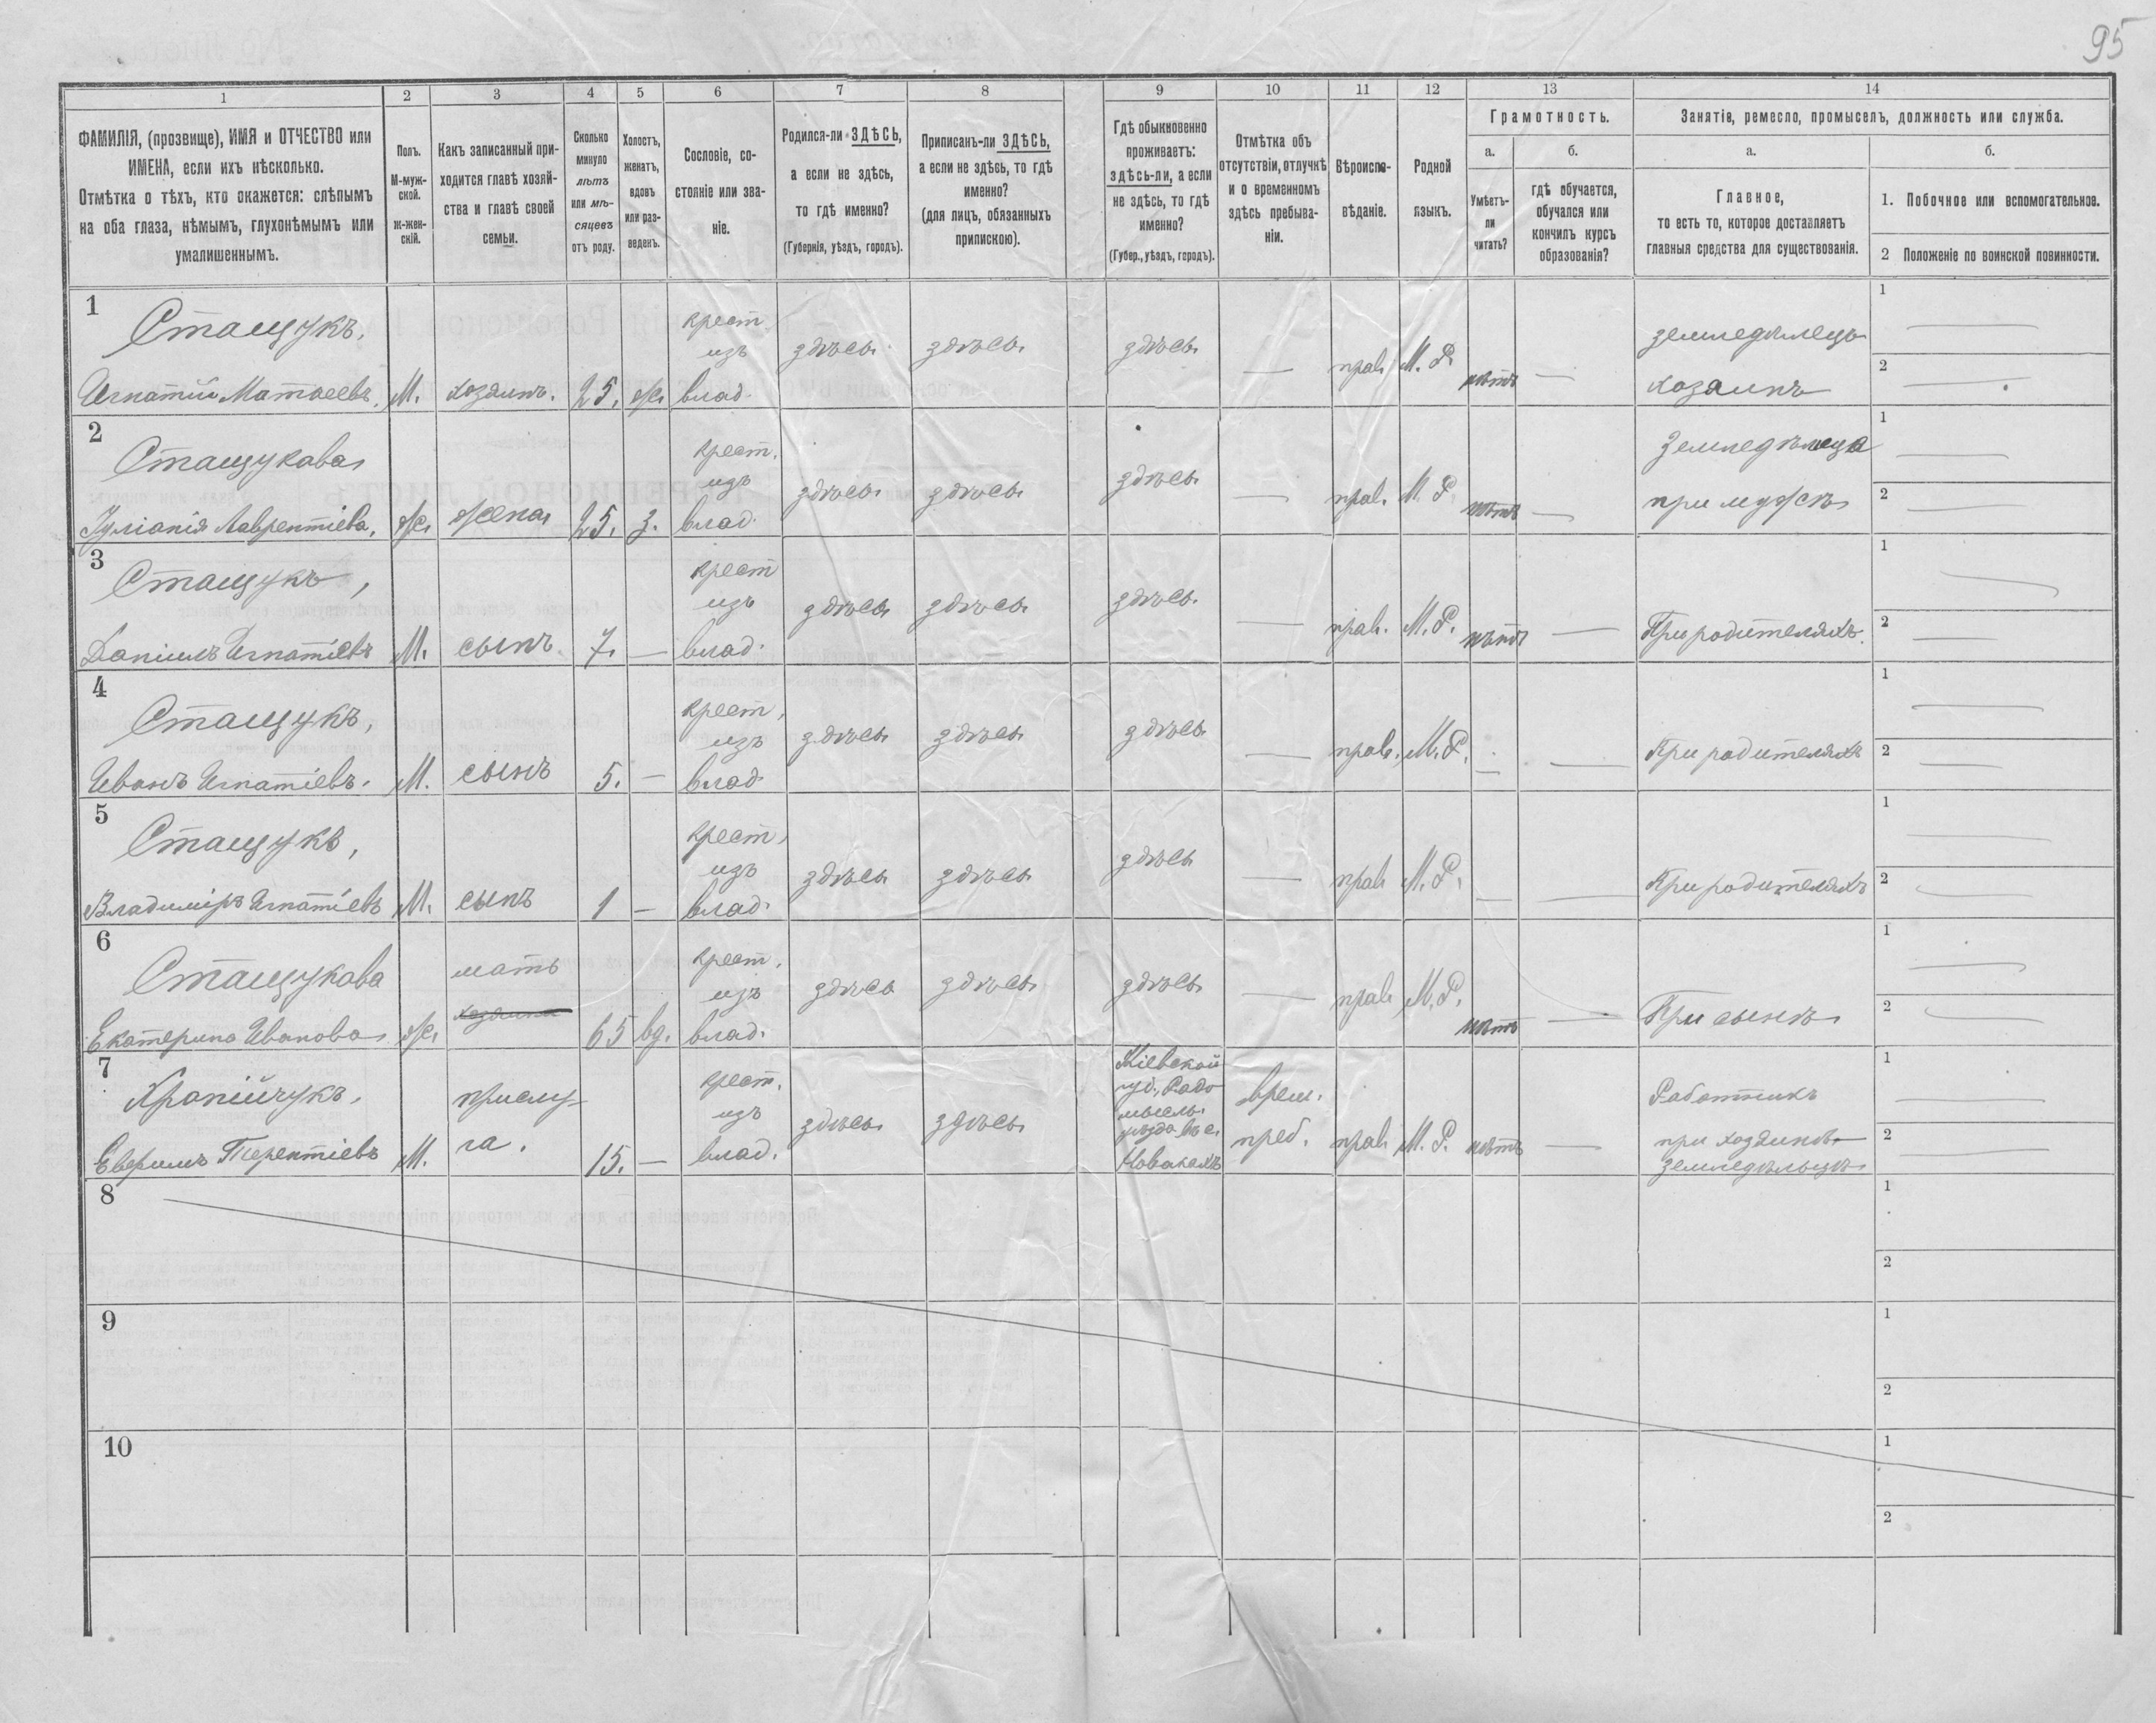 95
1 2 3 4 5 6 7 8 9 10 11 12 13 14
ФАМИЛІЯ, (прозвище), ИМЯ и ОТЧЕСТВО или
ИМЕНА, если ихъ нѣсколько.
Отмѣтка о тѣхъ, кто окажется: слѣпымъ
на оба глаза, нѣмымъ, глухонѣмымъ или
умалишеннымъ.
Полъ.
М-муж-
ской.
ж-жен-
скій.
Какъ записанный при-
ходится главѣ хозяй-
ства и главѣ своей
семьи.
Сколько
минуло
лѣтъ
или мѣ-
сяцевъ
отъ роду.
Холостъ,
женатъ,
вдовъ
или раз-
веденъ.
Сословіе, со-
стояніе или зва-
ніе.
Родился-ли ЗДѢСЬ,
а если не здѣсь,
то гдѣ именно?
(Губернія, уѣздъ, городъ).
Приписанъ-ли ЗДѢСЬ,
а если не здѣсь, то гдѣ
именно?
(для лицъ, обязанныхъ
припискою).
Гдѣ обыкновенно
проживаетъ:
здѣсь-ли, а если
не здѣсь, то гдѣ
именно?
(Губер., уѣздъ, городъ).
Отмѣтка объ
отсутствіи, отлучкѣ
и о временномъ
здѣсь пребыва-
ніи.
Вѣроиспо-
вѣданіе.
Родной
языкъ.
Грамотность.
а.
Умѣетъ-
ли
читать?
б.
гдѣ обучается,
обучался или
кончилъ курсъ
образованія?
Занятіе, ремесло, промыселъ, должность или служба.
а.
Главное,
то есть то, которое доставляетъ
главныя средства для существованія.
б.
1. Побочное или вспомогательное.
2 Положеніе по воинской повинности.
1
Стащукъ,
Игнатій Матвеевъ. М. хозяинъ. 25. ж.
крест
изъ
влад.
здѣсь здѣсь здѣсь — прав. М. Р. нѣтъ —
земледѣлецъ
хозяинъ
1 —
2 —
2
Стащукова
Іуліанія Лаврентіева, ж. жена 25. з.
крест.
изъ
влад.
здѣсь здѣсь здѣсь — прав. М. Р. нѣтъ —
Земледѣлица
при мужѣ
1 —
2 —
3
Стащукъ,
Даніилъ Игнатіевъ М. сынъ. 7. —
крест
изъ
влад.
здѣсь здѣсь здѣсь — прав. М. Р. нѣтъ —
При родителяхъ.
1 —
2 —
4
Стащукъ,
Иванъ Игнатіевъ. М. сынъ 5. —
крест,
изъ
влад
здѣсь здѣсь здѣсь — прав. М. Р. — —
При родителяхъ
1 —
2 —
5
Стащукъ,
Владиміръ Игнатіевъ М. сынъ 1 —
крест,
изъ
влад.
здѣсь здѣсь здѣсь — прав М. Р. — —
При родителяхъ
1 —
2 —
6
Стащукова
Екатерина Иванова ж.
мать
65 вд.
крест.
изъ
влад.
здѣсь здѣсь здѣсь — прав М. Р. нѣтъ —
При сынѣ
1 —
2 —
7
М.
прислу-
га.
15. —
крест.
изъ
влад.
здѣсь здѣсь
Кіевской
губ., Радо
мысль.
уѣзда въ с.
врем.
преб.
прав М. Р. нѣтъ —
Работникъ
при хозяинѣ
земледѣльцѣ
1 —
2 —
8
1
2
9
1
2
10
1
2